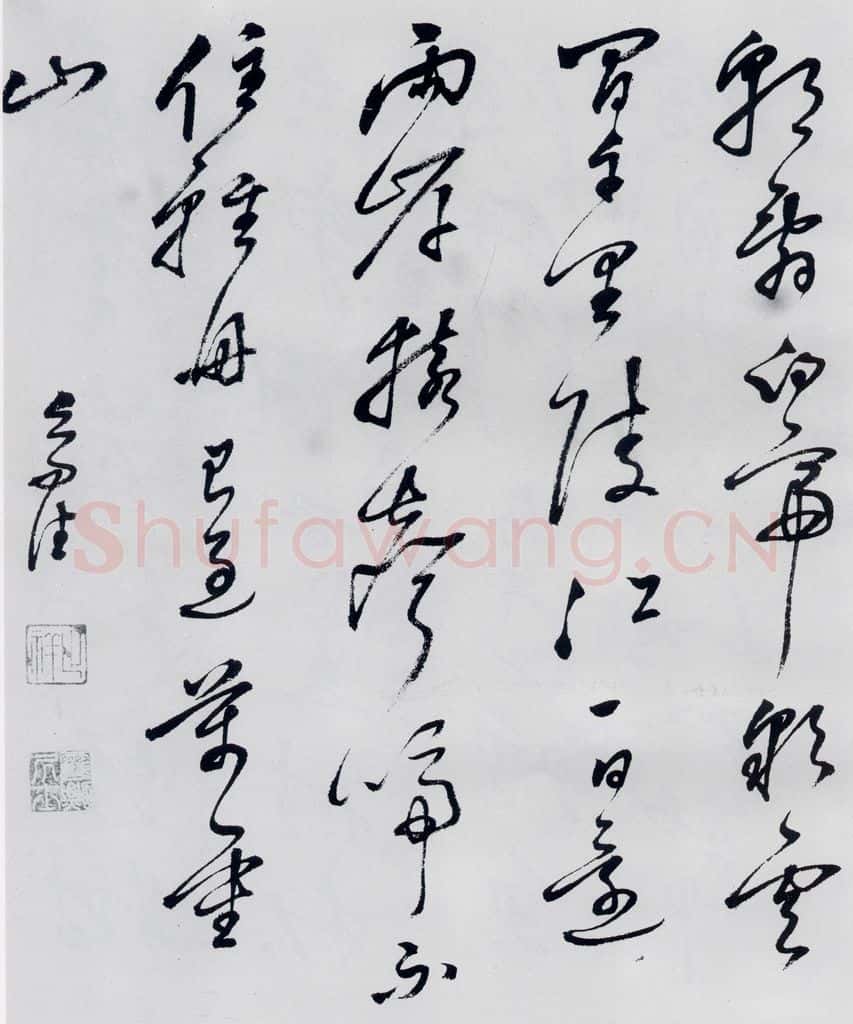 朝辭白帝彩雲
間千里陵江一日還
兩岸猿聲啼不
住輕舟已過萬重
山
Shufawang.CN